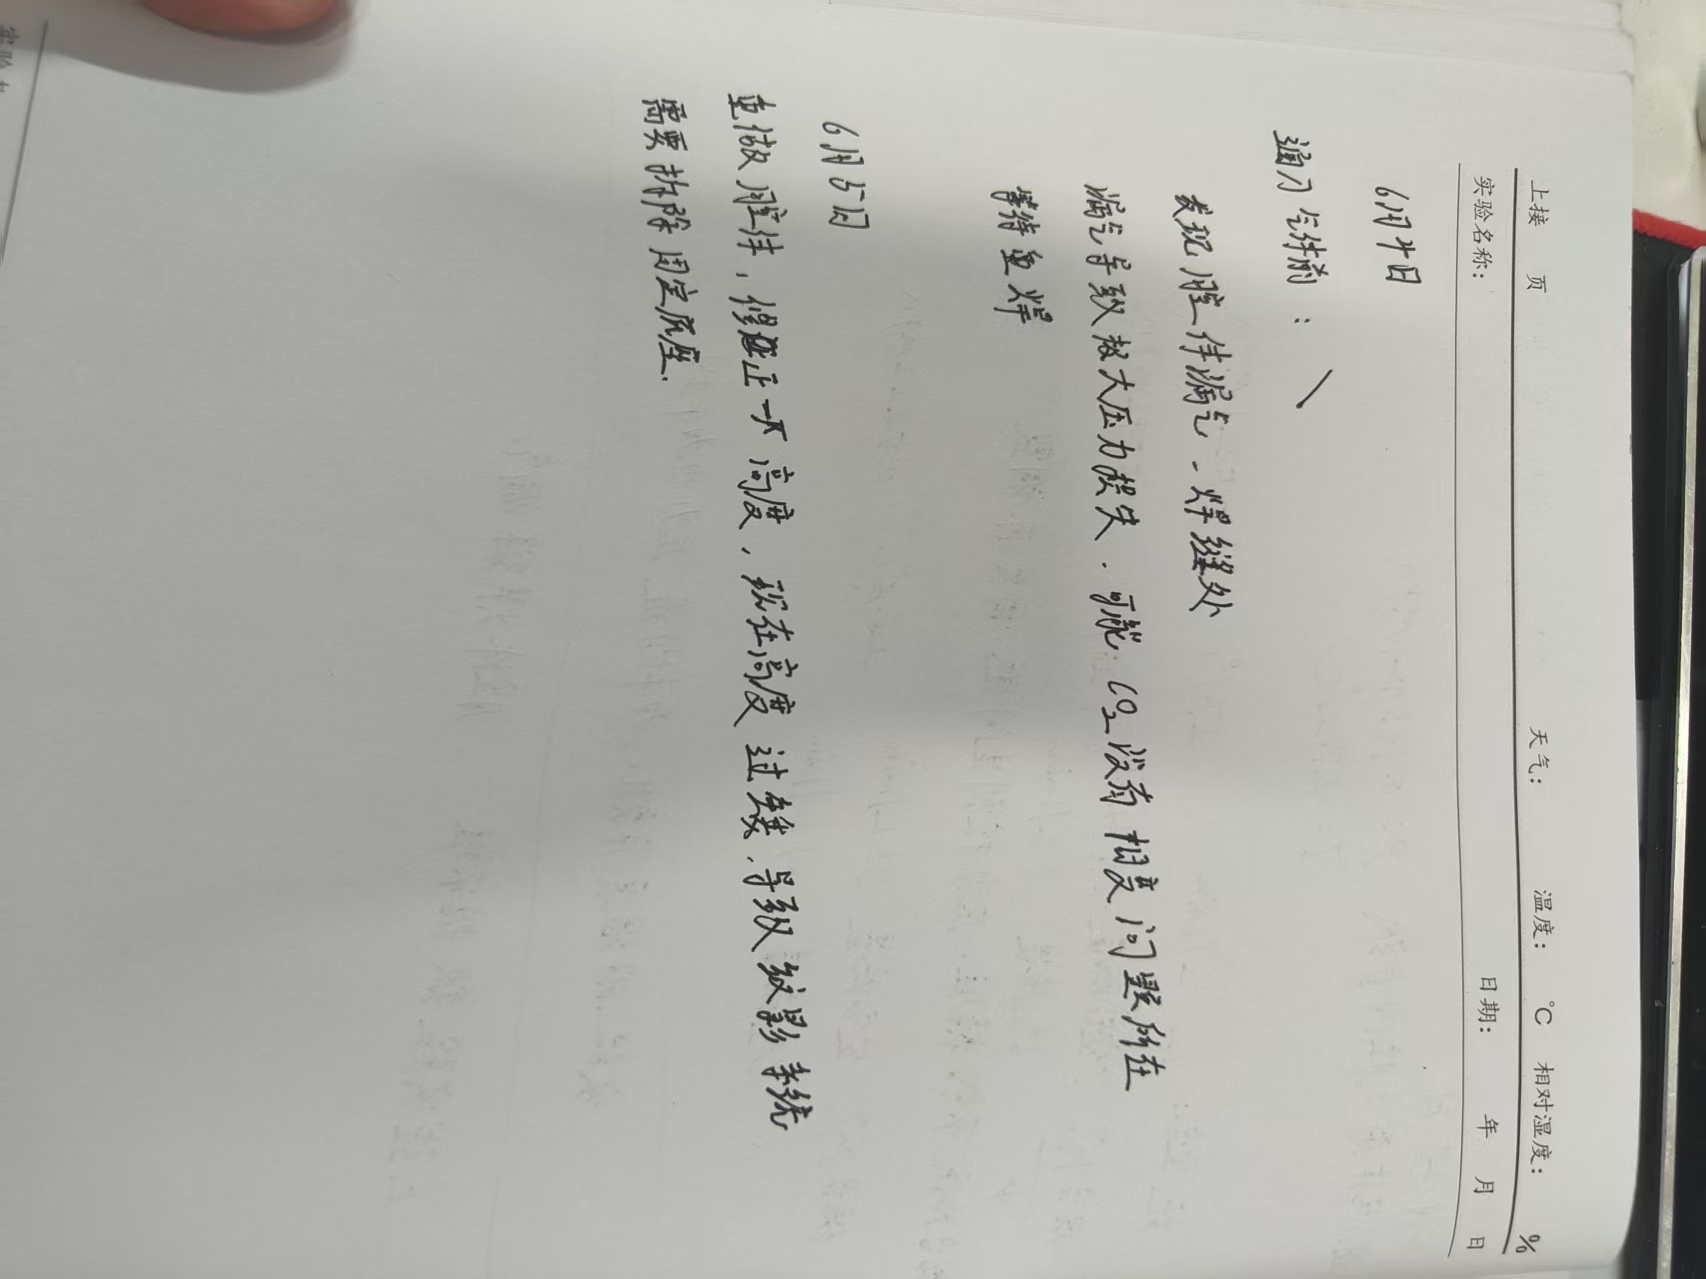 上接 页 天气： 温度： ℃ 相对湿度： %
实验名称： 日期： 年 月 日
6月4日
通入气体前：
发现腔体漏气，焊缝处
漏气导致极大压力损失．可能CO₂没有相变问题所在
等待重焊
6月5日
重做腔体，修正一下高度，现在高度过矮．导致纹影系统
需要拆除固定底座．
实验